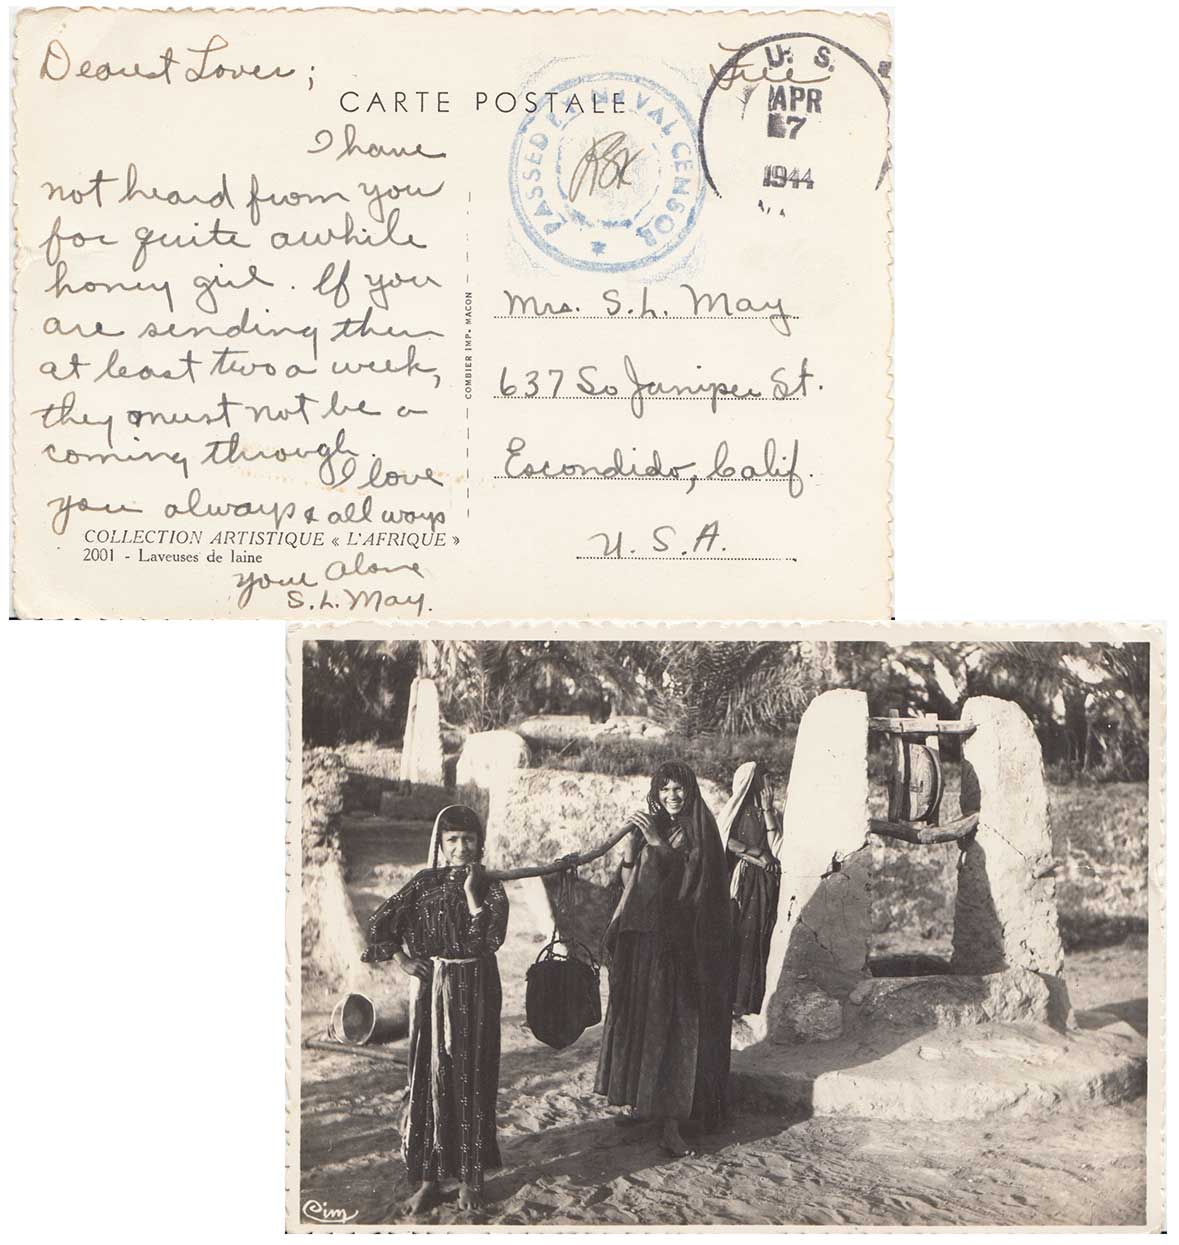 Dearest Lover;
CARTE POSTALE
I have
not heard from you
for quite awhile
honey girl. If you
are sending them
at least two a week,
they must not be a
coming through.
I love
you always & all ways
COLLECTION ARTISTIQUE « L'AFRIQUE »
2001 - Laveuses de laine
your alone
S.L. May.
COMBIER IMP. MACON
PASSED BY NAVAL CENSOR
Free
U. S.
APR
7
1944
Mrs. S.L. May
637 So Juniper St.
Escondido, Calif.
U. S. A.
Cim